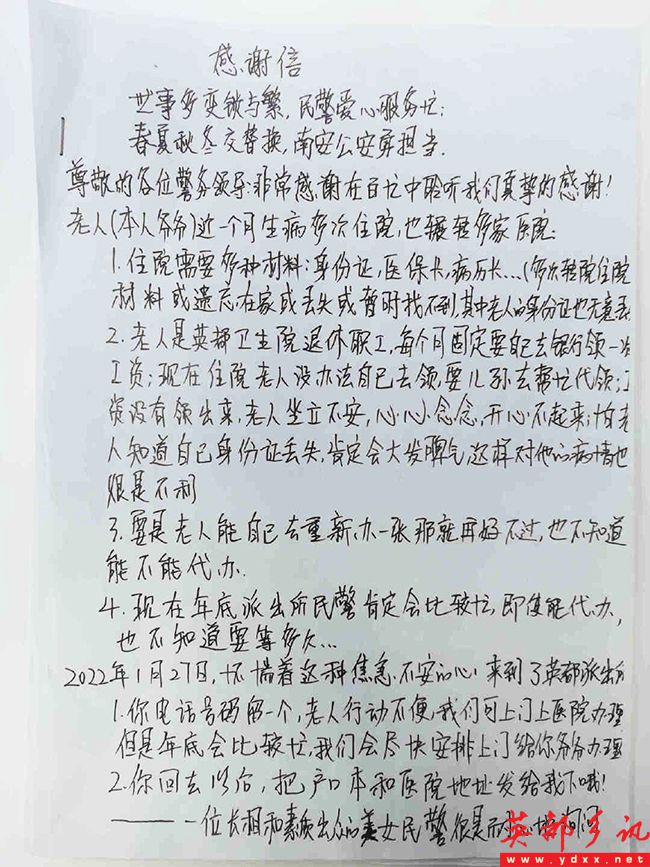 感谢信
世事多变锁与繁,民警爱心服务忙;
春夏秋冬交替换,南安公安勇担当.
尊敬的各位警务领导:非常感谢在百忙中聆听我们真挚的感谢!
老人(本人爷爷)近一个月生病多次住院,也辗转多家医院:
1.住院需要多种材料:身份证,医保卡,病历卡...(多次转院住院
材料或遗忘在家或丢失或暂时找不到,其中老人的身份证也无意丢
2.老人是英都卫生院退休职工,每个月固定要自己去银行领一次
工资;现在住院老人没办法自己去领,要儿孙去帮忙代领;工
资没有领出来,老人坐立不安,心心念念,开心不起来;怕老
人知道自己身份证丢失,肯定会大发脾气,这样对他的病情也
很是不利
3.要是老人能自己去重新办一张那就再好不过,也不知道
能不能代办.
4.现在年底派出所民警肯定会比较忙,即使能代办,
也不知道要等多久...
2022年1月27日,怀揣着这种焦急不安的心来到了英都派出所
1.你电话号码留一个,老人行动不便,我们可上门上医院办理
但是年底会比较忙,我们会尽快安排上门给你爷爷办理
2.你回去以后,把户口本和医院地址发给我下哦!
——一位长相和素质出众的美女民警很是耐心地
英都乡讯
www.ydxx.net